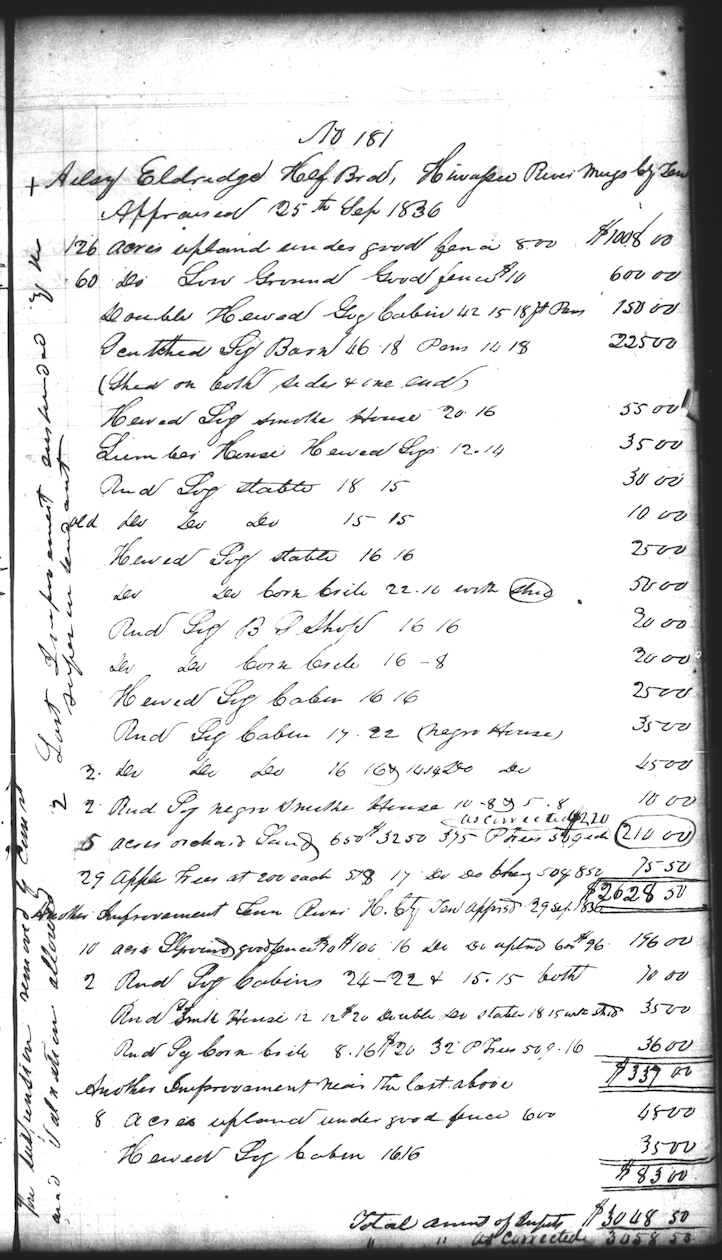 No 181
+ Ailsy Eldredge Hlf Brd, Hiwassee River Meigs Cty Ten
Appraised 25th Sep 1836
126 acres upland under good fence 800 $1008 00
60 Do Low Ground Good fence $10 600 00
Double Hewed Log Cabin 42 15 18 ft Pens 150 00
Scutched Log Barn 46 18 Pens 14 18 225 00
(Shed on both sides & one end)
Hewed Log smoke House 20 16 55 00
Lumber House Hewed Logs 12.14 35 00
Rnd Log stable 18 15 30 00
old do do do 15 15 10 00
Hewed Log stable 16 16 25 00
do do Corn Crib 22.10 with shed 50 00
Rnd Log B S Shop 16 16 20 00
do do Corn Crib 16-8 20 00
Hewed Log Cabin 16 16 25 00
Rnd Log Cabin 17.22 (negro House) 35 00
2. do do do 16 16 & 14 14 Do do 45 00
2 Rnd Log negro Smoke House 10-8 & 5.8 10 00
as corrected $220
5 acres orchard Land 650 $3250 375 P trees 50 each 210 00
29 Apple Trees at 200 each 58 17 Do Do Chery 50 $ 850 75 50
$2628 50
Another Improvement Tenn River H. Cty Ten apprsd 29 Sep. 1836
10 acres Ground good fence $10 $100 16 Do Do upland 600 $96 196 00
2 Rnd Log Cabins 24-22 & 15.15 both 70 00
Rnd Smk House 12 12 $20 Double Do stable 18 15 with shed 35 00
Rnd Log Corn Crib 8.16 $20 32 P Trees 50 $.16 36 00
$337 00
Another Improvement near the last above
8 Acres upland under good fence 600 48 00
Hewed Log Cabin 16 16 35 00
$83 00
Total amnt of Impts $3048 50
" " as Corrected 3058 50
2 Last Improvement suspended by the
superintendant
The suspension removed by comrs
and Valuation allowed